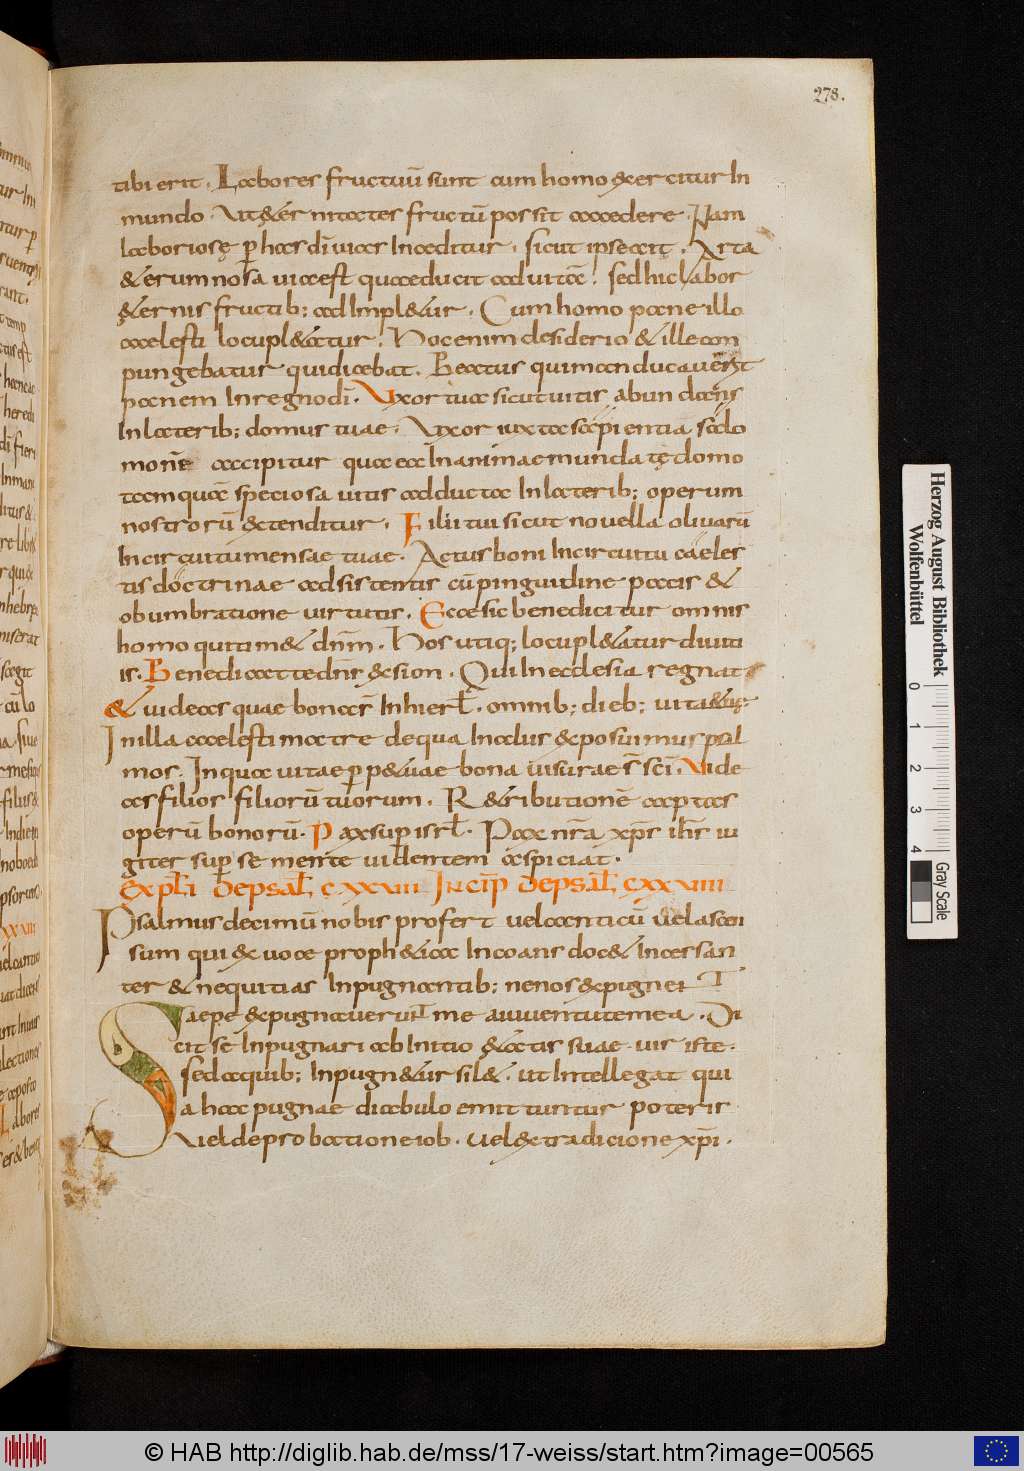 278.
tibi erit. Labores fructuū sunt cum homo &ercitur In
mundo. Ut &ęr nitates fructū possit accedere. Nam
laboriosę p̄ has diuicias Inceditur. sicut ipse ait. Arta
& erumnosa uia est quae ducit ad uitā. sed hic labor
&ęrnis fructib; ad Impl&ur. Cum homo pane illo
caelesti locupl&atur. Hoc enim desiderio & ille con
pungebatur qui dicebat. Beatus qui manducauerit
panem In regno dī. Uxor tua sicut uitis abundans
In laterib; domus tuae. Uxor iuxta sapientiā salo
monē accipitur quae ea In animae mundatę domo
tamquā speciosa uitis adducta In laterib; operum
nostrorū &tenditur. Filii tui sicut nouella oliuarū
In circuitu mensae tuae. Actus boni In circuitu caeles
tis doctrinae adsistentis cū pinguidine pacis &
obumbratione uirtutis. Ecce sic benedicitur omnis
homo qui tim& dnm̄. Hos utiq; locupl&atur diuiti
is. Benedicat te dns̄ &sion. Qui In ecclesia regnat
& uideas quae bona s̄ In hierl̄. omnib; dieb; uitae tuę.
In illa caelesti matre de qua Incelus &posuimus psal
mos. In qua uitae p̄p&uae bona uisurae s̄ sc̄i. Vide
as filios filiorū tuorum. R&ributionē accaptas
operū bonorū. Pax sup̄ isrl̄. Pax nr̄a xp̄s ih̄s iu
giter sup̄ se mente uidentem aspiciat.
Expl̄i de psal̄; cxxuiii Incip̄ de psal̄; cxxuiiii
Psalmus decimū nobis profert uel canticū uel ascen
sum qui & uoce proph&ica Incoans doc& Incessan
ter & nequitias Inpugnantib; ne nos &pugnent
Saepe &pugnauerunt me a iuuentute mea. Di
cit se Inpugnari ab Initio &atis suae. uir iste.
sed a quib; Inpugn&ur sil&. ut Intellegat qui
a haec pugnae diabulo emittuntur poteris
Uel de probatione iob. uel & tradicione xp̄i.
Herzog August Bibliothek
Wolfenbüttel
0 1 2 3 4
Gray Scale
© HAB http://diglib.hab.de/mss/17-weiss/start.htm?image=00565